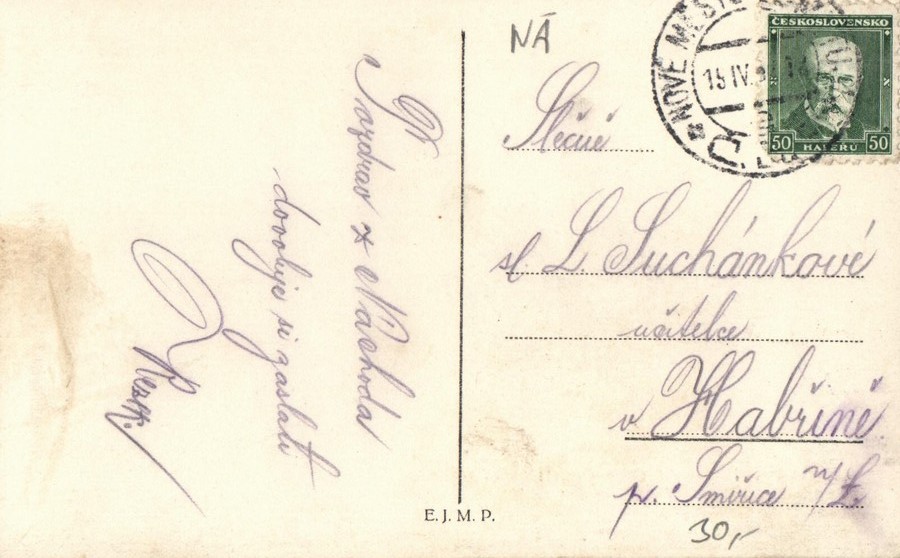 Pozdrav z Náchoda
dovoluje si zaslati
NÁ
Slečně
sl. L. Suchánkové
učitelce
v Habřině
p. Smiřice n/L.
30,-
E. J. M. P.
ČESKOSLOVENSKO
50 HALÉŘŮ 50
NOVÉ MĚSTO
15 IV.